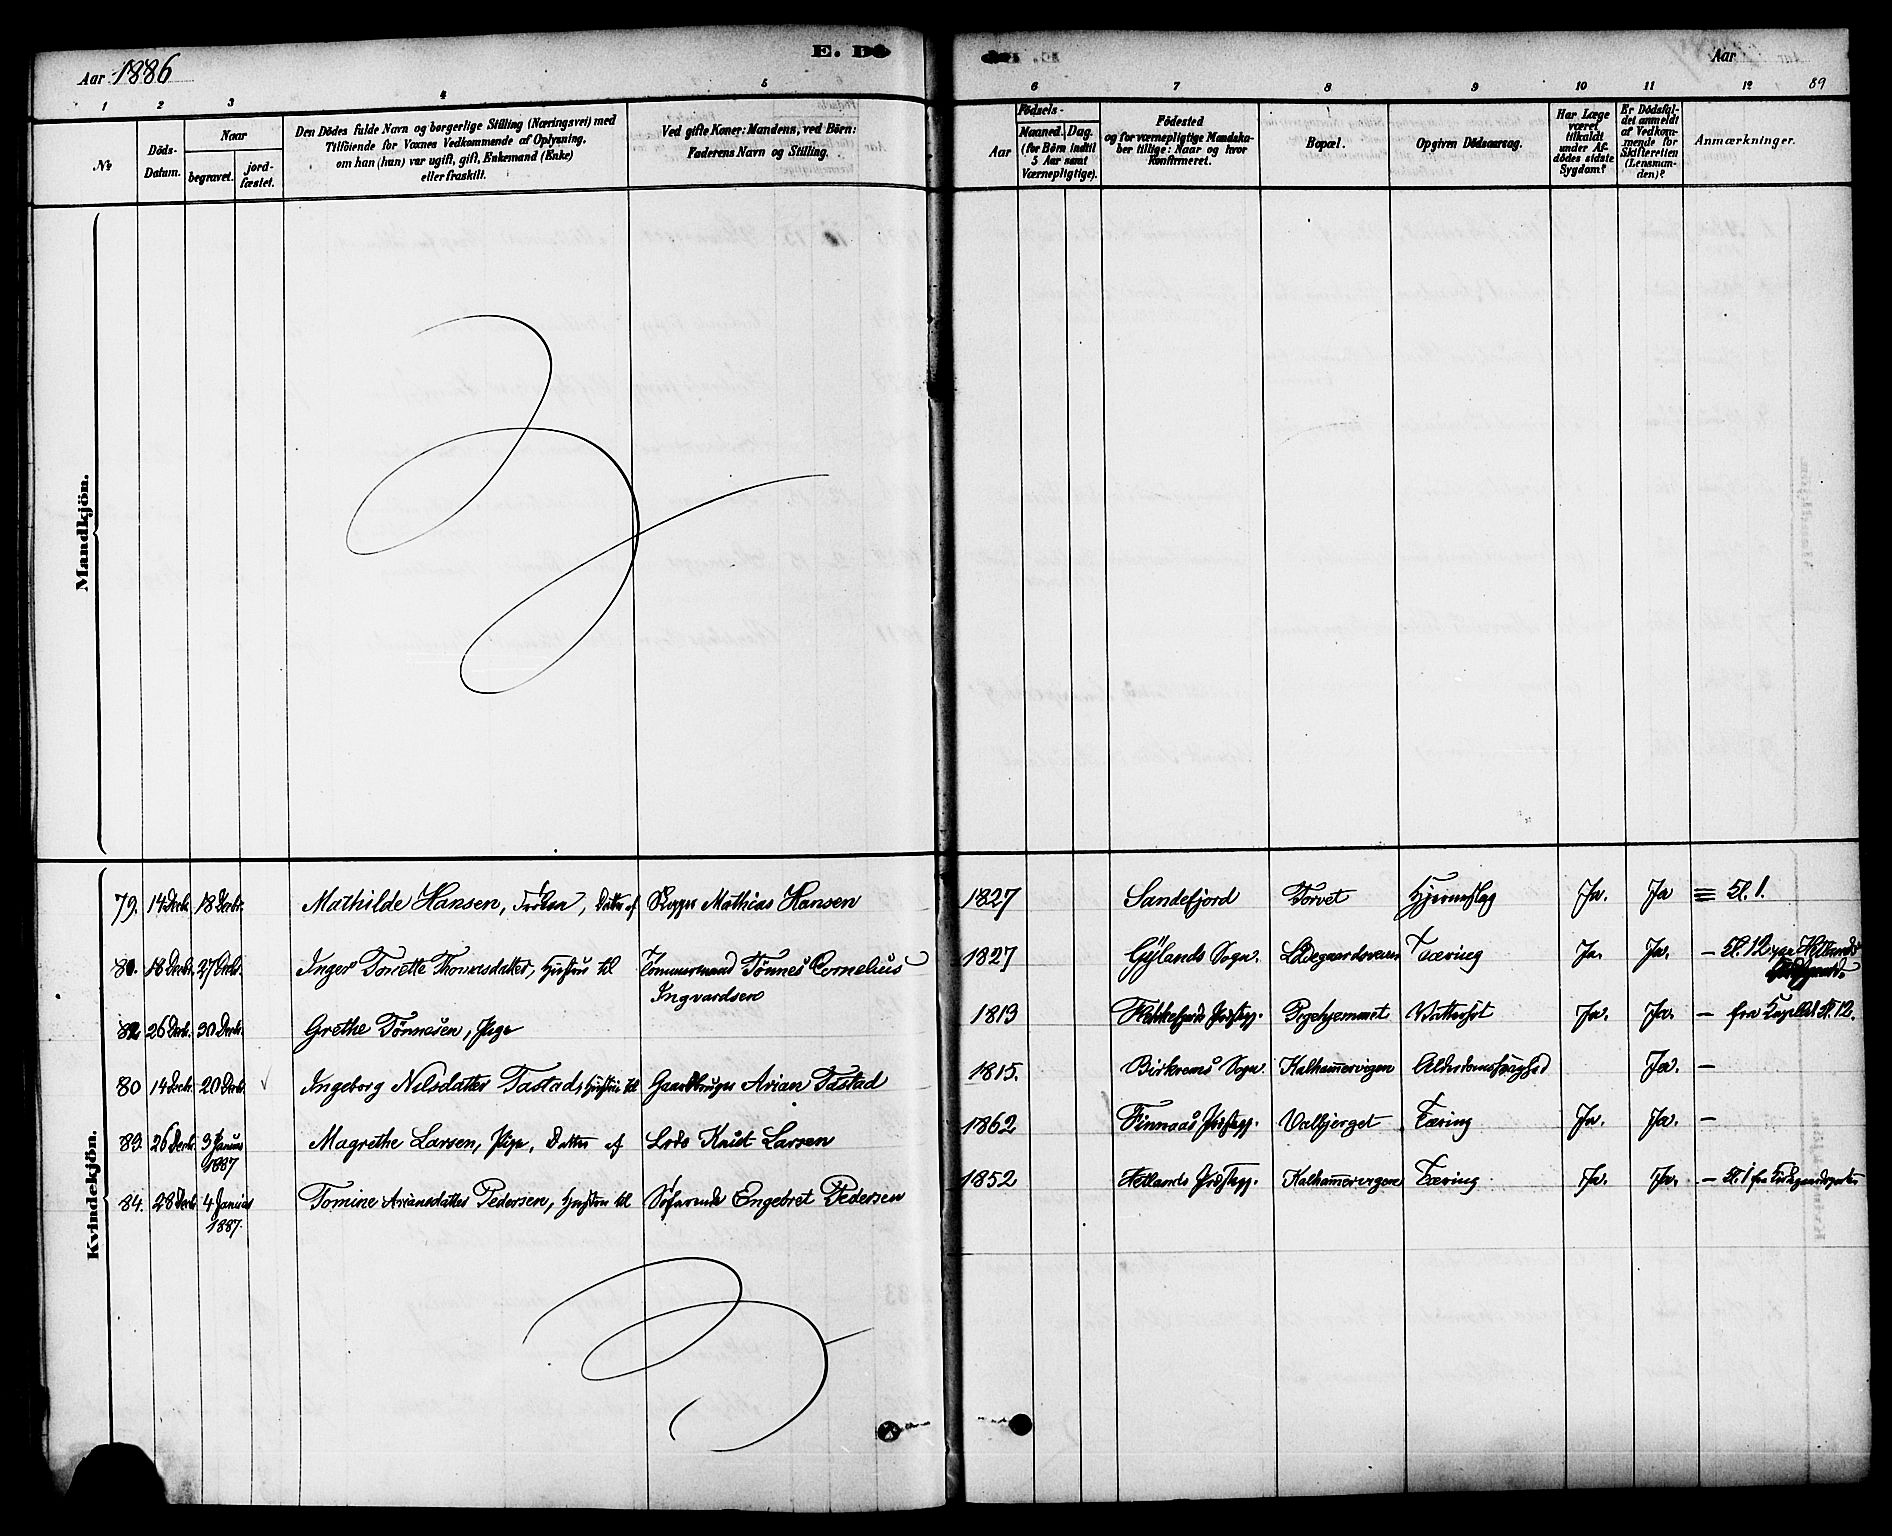 E. Dö
Aar 1886
Aar
89
1 2 3 4 5 6 7 8 9 10 11 12
No
Döds-Datum.
Naar
begravet.
jord-fæstet.
Den Dödes fulde Navn og borgerlige Stilling (Næringsvei) med
Tilföiende for Voxnes Vedkommende af Oplysning,
om han (hun) var ugift, gift, Enkemand (Enke)
eller fraskilt.
Ved gifte Koner: Mandens, ved Börn:
Faderens Navn og Stilling.
Födsels-
Aar
Maaned. Dag.
(for Börn indtil
5 Aar samt
Værnepligtige).
Födested
og for værnepligtige Mandska-
ber tillige: Naar og hvor
Konfirmeret.
Bopæl.
Opgiven Dödsaarsag.
Har Læge
været
tilkaldt
under Af-
dödes sidste
Sygdom?
Er Dödsfal-
det anmeldt
af Vedkom-
mende for
Skifteretten
(Lensman-
den)?
Anmærkninger.
Mandkjön.
Kvindekjön.
79. 14 Decbr. 18 Decbr. Mathilde Hansen, Frøken, Datter af Skipper Mathias Hansen 1827 Sandefjord Torvet Hjerneslag Ja. Ja Kl. 1.
18 Decbr. 27 Decbr. Inger Tonette Thomasdatter, Hustru til Tommermand Tönnes Cornelius 1827 Gÿlands Sogn. Ladegaardsveien Tæring Ja. Ja. — Kl. 12
Ingvardsen
82 26 Decbr. 30 Decbr. Grethe Tönnesen, Pige 1813 Flekkefjords Præstegj. Pryehjemmet Vattersot Ja. Ja. — fra Kapellet Kl. 12.
80 14 Decbr. 20 Decbr. Ingeborg Nilsdatter Tastad, Hustru til Gaardbruger Arian Tastad 1815. Birkrems Sogn. Kalhammervigen Alderdomssvaghed Ja. —
83. 26 Decbr. 3 Januar Magrethe Larsen, Pige, Datter af Lods Knut Larsen 1862 Finnaas Præstegj. Valbjerget Tæring Ja. Ja. —
1887
84. 28 Decbr 4 Januar Tomine Ariansdatter Pedersen, Hustru til Søfarende Engebret Pedersen 1852 Hetlands Præstegj. Kalhammervigen Tæring Ja. Ja. — Kl. 1 fra Kirkegaardsporten
1887.